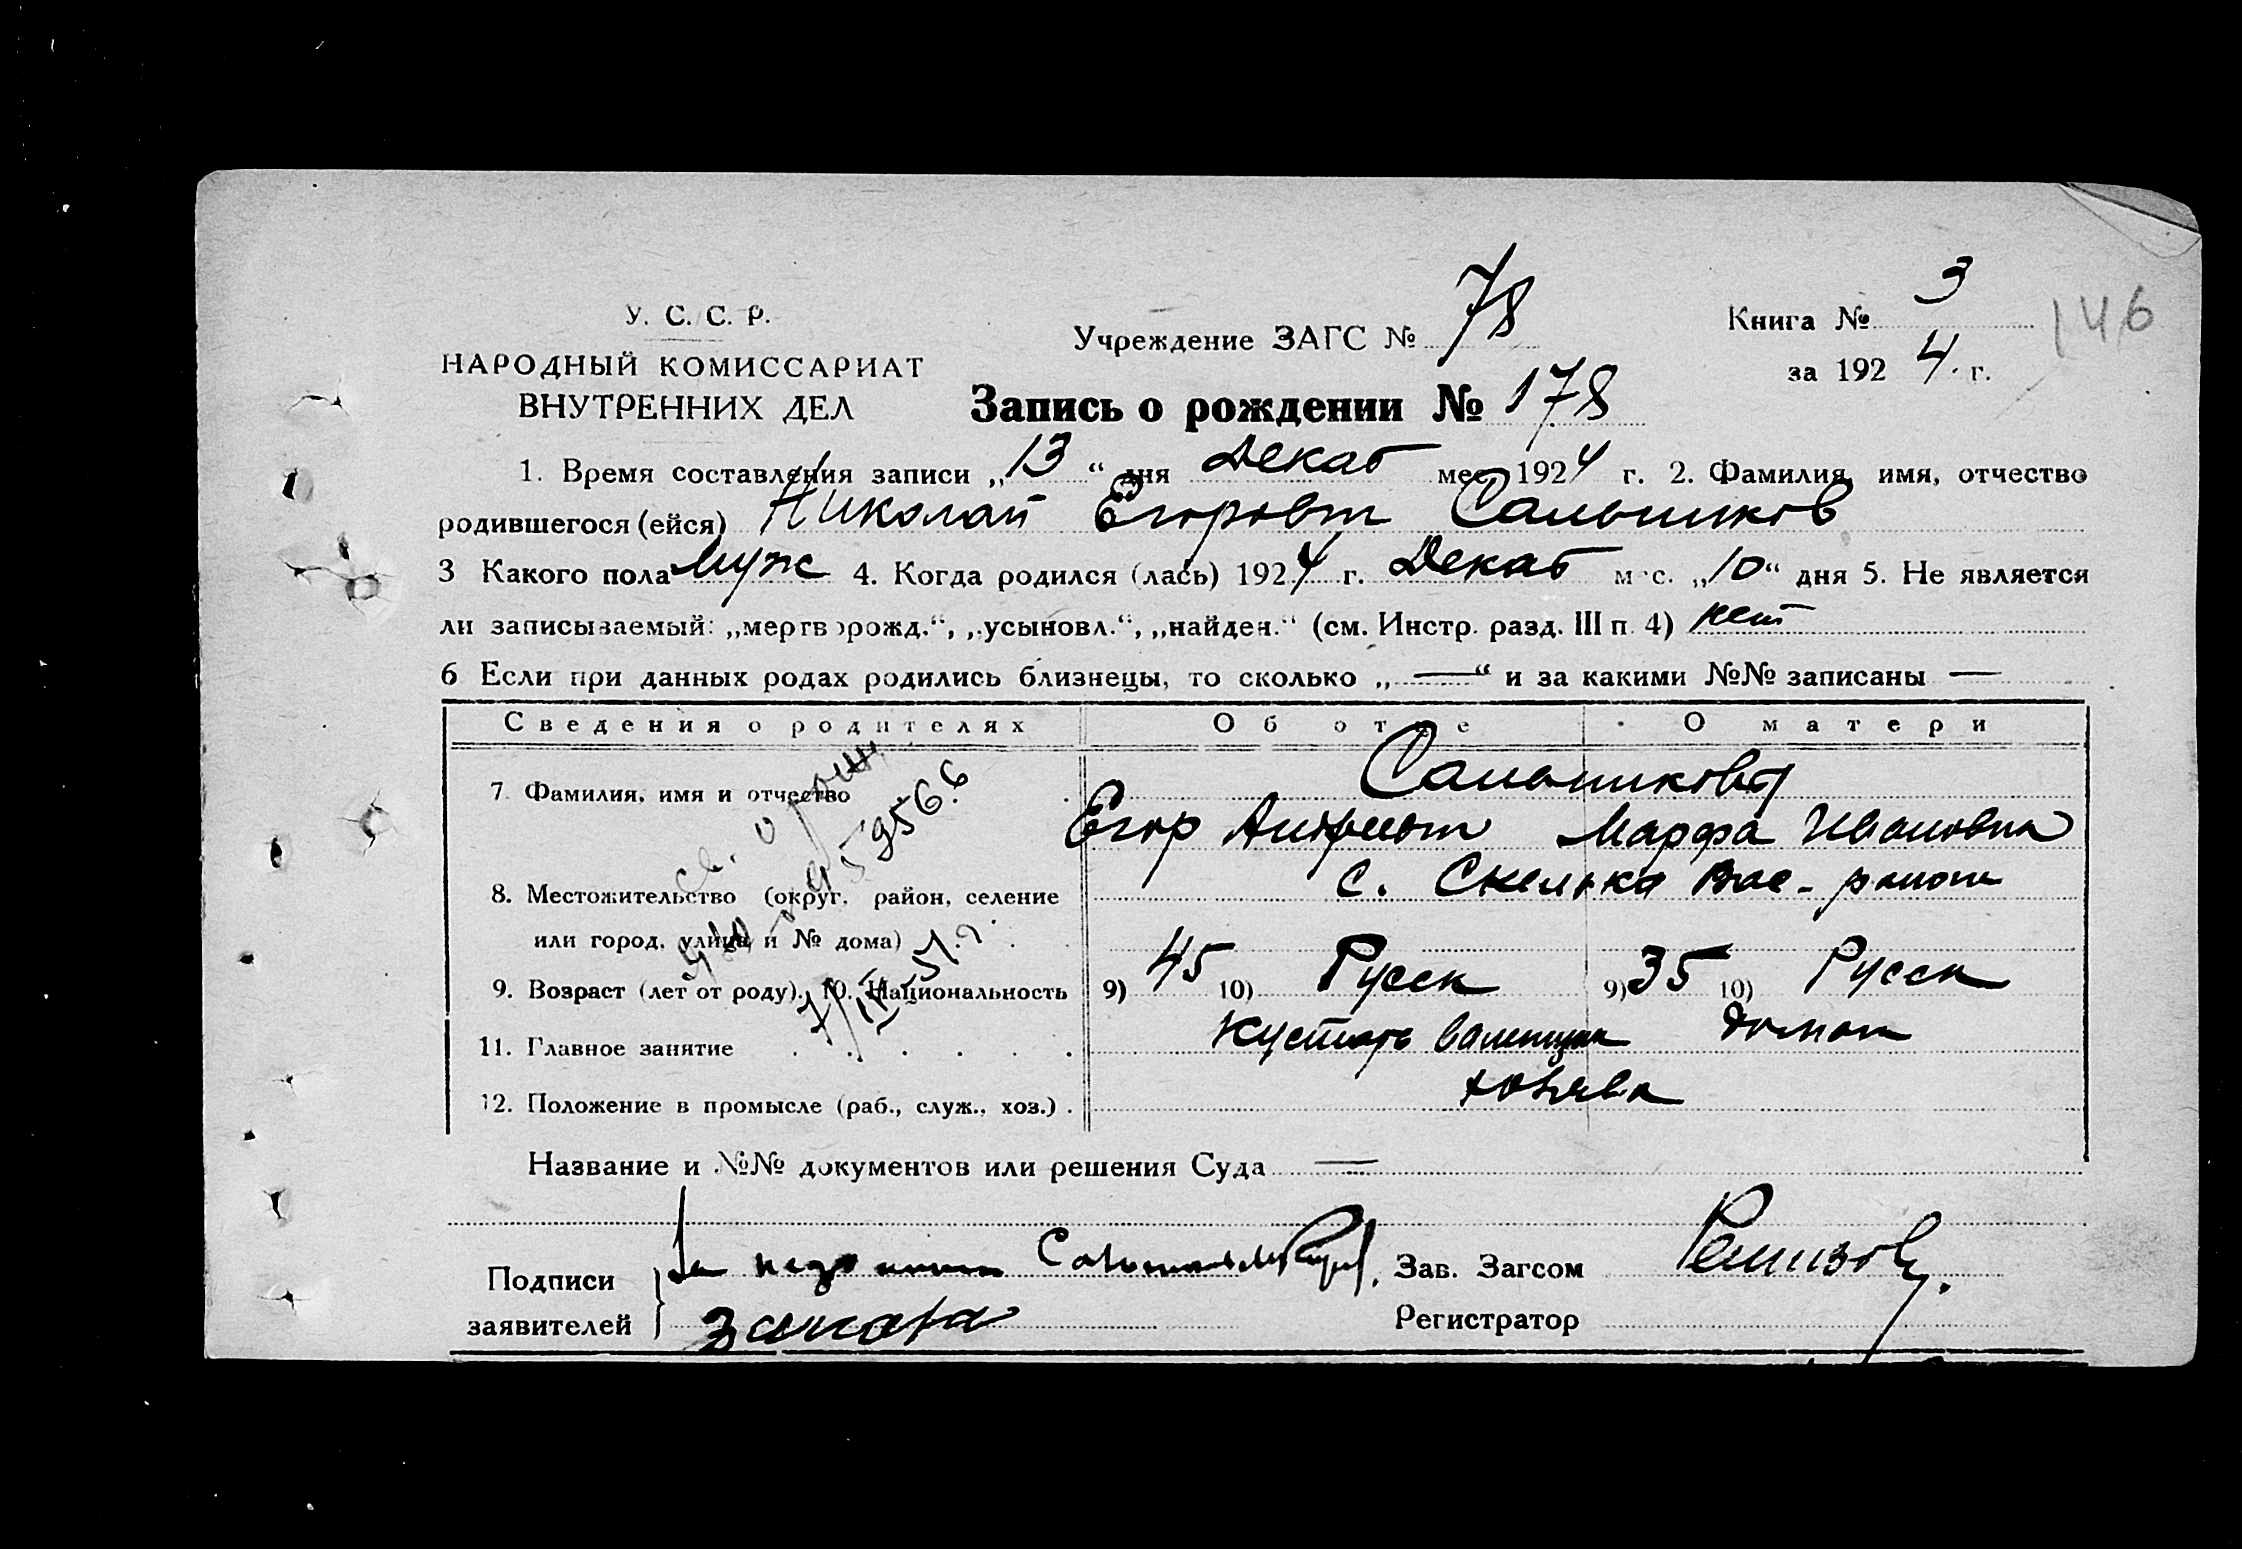 У. С. С. Р.
НАРОДНЫЙ КОМИССАРИАТ
ВНУТРЕННИХ ДЕЛ
Учреждение ЗАГС № 78
Книга № 3
за 1924 г.
146
Запись о рождении № 178
1. Время составления записи „13“ дня Декаб мес. 1924 г. 2. Фамилия, имя, отчество
родившегося (ейся) Николай Егоровт Сальников
3 Какого пола Муж 4. Когда родился (лась) 1924 г. Декаб мес. „10“ дня 5. Не является
ли записываемый: „мертворожд.“, „усыновл.“, „найден.“ (см. Инстр. разд. III п. 4) нет
6 Если при данных родах родились близнецы, то сколько „—“ и за какими №№ записаны —
Сведения о родителях Об отце О матери
7. Фамилия, имя и отчество Сальникова
Егор Марфа Ивановна
8. Местожительство (округ, район, селение с. Скелька Вас- район
или город, улица и № дома)
9. Возраст (лет от роду). 10. Национальность 9) 45 10) Русск 9) 35 10) Русск
11. Главное занятие Кустарь Домаш
12. Положение в промысле (раб., служ., хоз.) хозяева
св. о рожд.
Название и №№ документов или решения Суда —
Подписи
заявителей
За
Зав. Загсом Ремизов
Регистратор